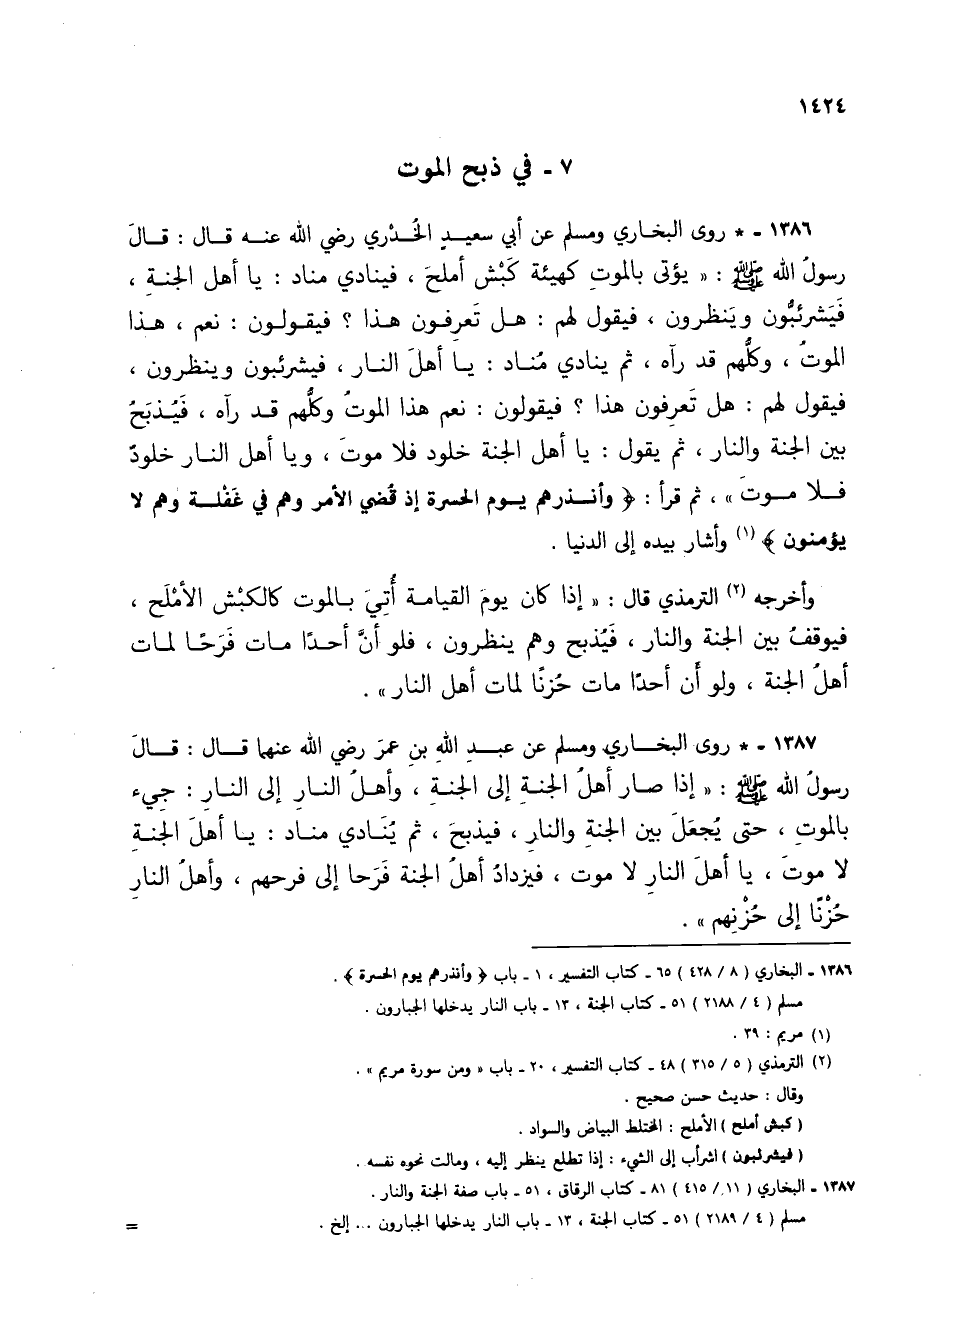 ١٤٢٤
٧ - في ذبح الموت
١٣٨٦ - * روى البخاري ومسلم عن أبي سعيدٍ الخُدْري رضي الله عنه قال : قالَ
رسولُ الله ﷺ : « يؤتى بالموتِ كهيئة كَبْش أملحَ ، فينادي مناد : يا أهل الجنةِ ،
فَيَشرئبُّون ويَنظرون ، فيقول لهم : هل تَعرفون هذا ؟ فيقولون : نعم ، هذا
الموتُ ، وكلُّهم قد رآه ، ثم ينادي مُناد : يا أهلَ النار ، فيشرئبون وينظرون ،
فيقول لهم : هل تَعرِفون هذا ؟ فيقولون : نعم هذا الموتُ وكلُّهم قد رآه ، فَيُذبَحُ
بين الجنة والنار ، ثم يقول : يا أهل الجنة خلود فلا موتَ ، ويا أهل النار خلودٌ
فلا موتَ » ، ثم قرأ : ﴿ وأنذرهم يوم الحسرة إذ قُضي الأمر وهم في غَفْلة وهم لا
يؤمنون ﴾ (١) وأشار بيده إلى الدنيا .
وأخرجه (٢) الترمذي قال : « إذا كان يومَ القيامة أُتِيَ بالموت كالكبْش الأمْلَح ،
فيوقفُ بين الجنة والنار ، فَيُذبح وهم ينظرون ، فلو أنَّ أحدًا مات فَرَحًا لمات
أهلُ الجنة ، ولو أن أحدًا مات حُزنًا لمات أهل النار» .
١٣٨٧ - * روى البخاري ومسلم عن عبد اللهِ بنِ عمرَ رضي الله عنهما قال : قالَ
رسولُ الله ﷺ : « إذا صار أهلُ الجنةِ إلى الجنةِ ، وأهلُ النارِ إلى النارِ : جيء
بالموتِ ، حتى يُجعَلَ بين الجنةِ والنارِ ، فيذبحَ ، ثم يُنَادي مناد : يا أهلَ الجنةِ
لا موتَ ، يا أهلَ النارِ لا موت ، فيزدادُ أهلُ الجنة فَرَحا إلى فرحهم ، وأهلُ النارِ
حُزْنًا إلى حُزْنِهم » .
١٣٨٦ - البخاري ( ٨ / ٤٢٨ ) ٦٥ - كتاب التفسير ، ١ - باب ﴿ وأنذرهم يوم الحسرة ﴾ .
مسلم ( ٤ / ٢١٨٨ ) ٥١ - كتاب الجنة ، ١٣ - باب النار يدخلها الجبارون .
(١) مريم : ٣٩ .
(٢) الترمذي ( ٥ / ٣١٥ ) ٤٨ - كتاب التفسير ، ٢٠ - باب « ومن سورة مريم » .
وقال : حديث حسن صحيح .
( كبش أملح ) الأملح : المختلط البياض والسواد .
( فيشرئبون ) اشرأب إلى الشيء : إذا تطلع ينظر إليه ، ومالت نحوه نفسه .
١٣٨٧ - البخاري ( ١١ / ٤١٥ ) ٨١ - كتاب الرقاق ، ٥١ - باب صفة الجنة والنار .
مسلم ( ٤ / ٢١٨٩ ) ٥١ - كتاب الجنة ، ١٣ - باب النار يدخلها الجبارون ... إلخ .
=